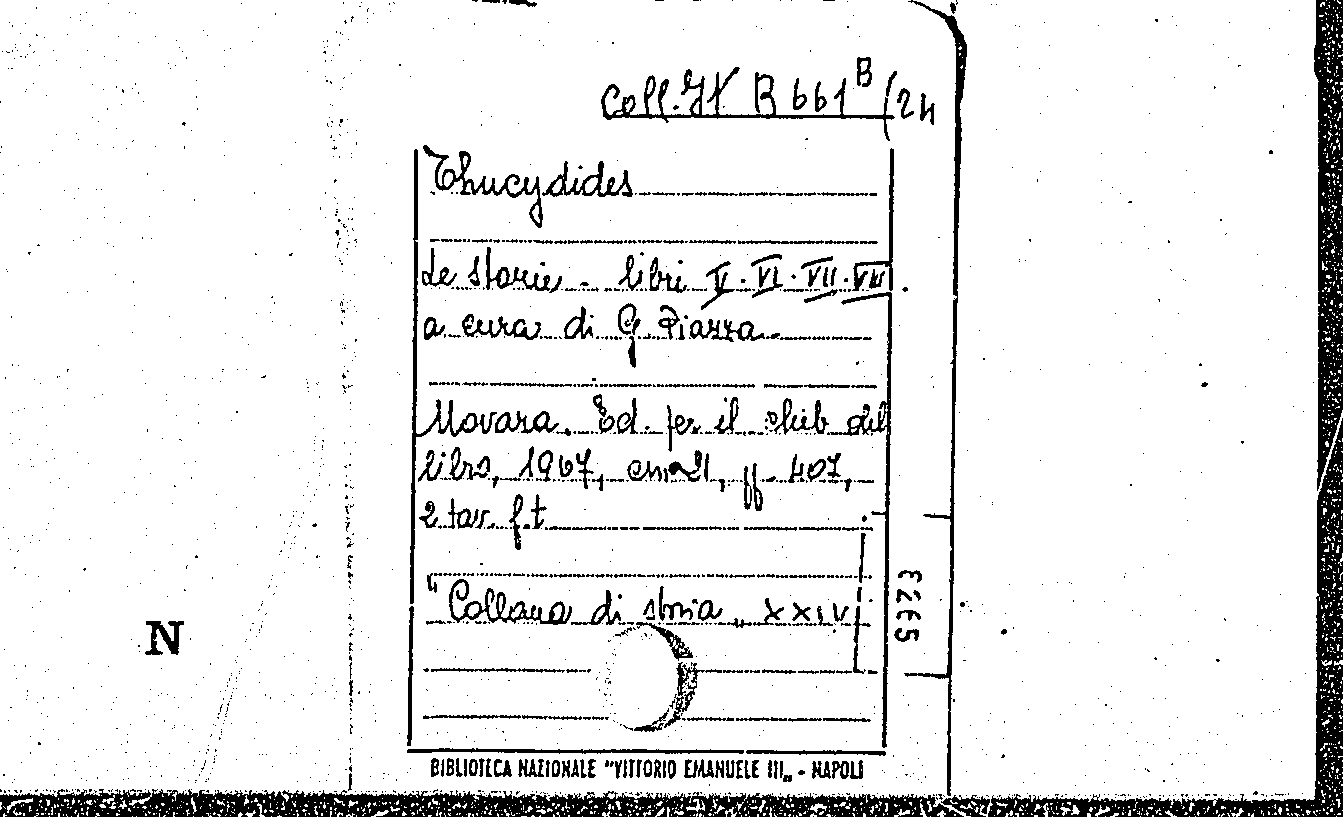 Coll. It B 661 B/24
Thucydides
Le storie - libri V. VI. VII. VIII.
a cura di G. Piazza
Novara. Ed. per il club del
libro, 1967, cm 21, pp. 407,
2 tav. f.t
"Collana di storia„ XXIV
N
BIBLIOTECA NAZIONALE "VITTORIO EMANUELE III„ - NAPOLI